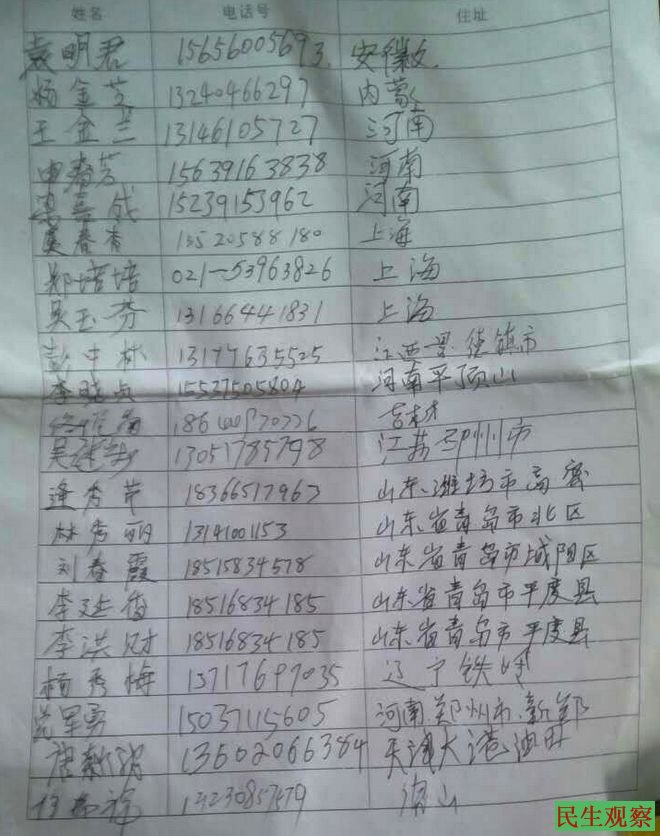 姓名 电话号 住址
袁明君 15656005693. 安徽
杨金芝 13240466297 内蒙
王金兰 13146105727 河南
申春芳 15639163838 河南
15239153962 河南
春杏 13520588180 上海
郑培培 021-53963826 上海
吴玉芬 13166441831 上海
彭中林 13177635525 江西景德镇市
李晓贞 15537505804 河南平顶山
吉林
吴 13051785798 江苏邳州市
逄秀芹 18366517963 山东潍坊市高密
林秀丽 13141001153 山东省青岛市北区
刘春霞 18515834578 山东省青岛市城阳区
李延梅 18516834185 山东省青岛市平度县
李洪财 18516834185 山东省青岛市平度县
杨秀梅 13717697035 辽宁铁岭
党军勇 15037115605 河南郑州市新郑
唐新 13602066384 天津大港油田
山
民生观察